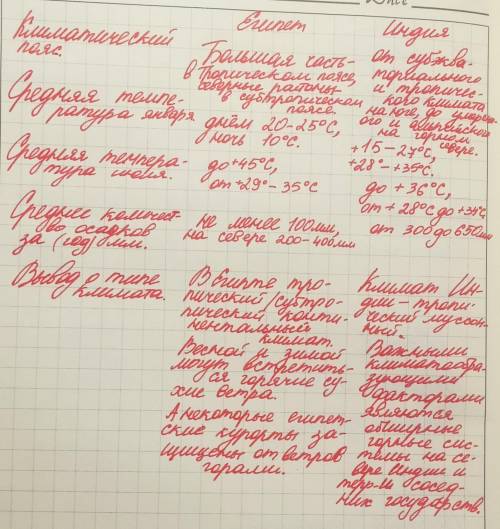 Египет
Индия
Климатический
пояс.
Большая часть-
в тропическом поясе,
северные районы
в субтропическом
поясе.
от субэква-
ториального
и тропичес-
кого климата
на юге, до
на горном
севере.
Средняя темпе-
ратура января
днём 20-25°С,
ночь 10°С.
+15-27°С,
+28°-+35°С.
Средняя темпера-
тура июля.
до +45°С,
от +29°-35°С
до +36°С,
от +28°С до +34°С
Среднее количест-
во осадков
за (год) мм.
не менее 100мм,
на севере 200-400мм
от 300 до 650мм
Вывод о типе
климата.
В Египте тро-
пический/субтро-
пический конти-
нентальный
климат.
Весной и зимой
могут встретить-
ся горячие су-
хие ветра.
А некоторые египет-
ские курорты за-
щищены от ветров
горами.
Климат Ин-
дии-тропи-
ческий муссон-
ный.
Важными
климатообра-
зующими
факторами
являются
обширные
горные сис-
темы на се-
вере Индии и
терр-ии сосед-
них государств.